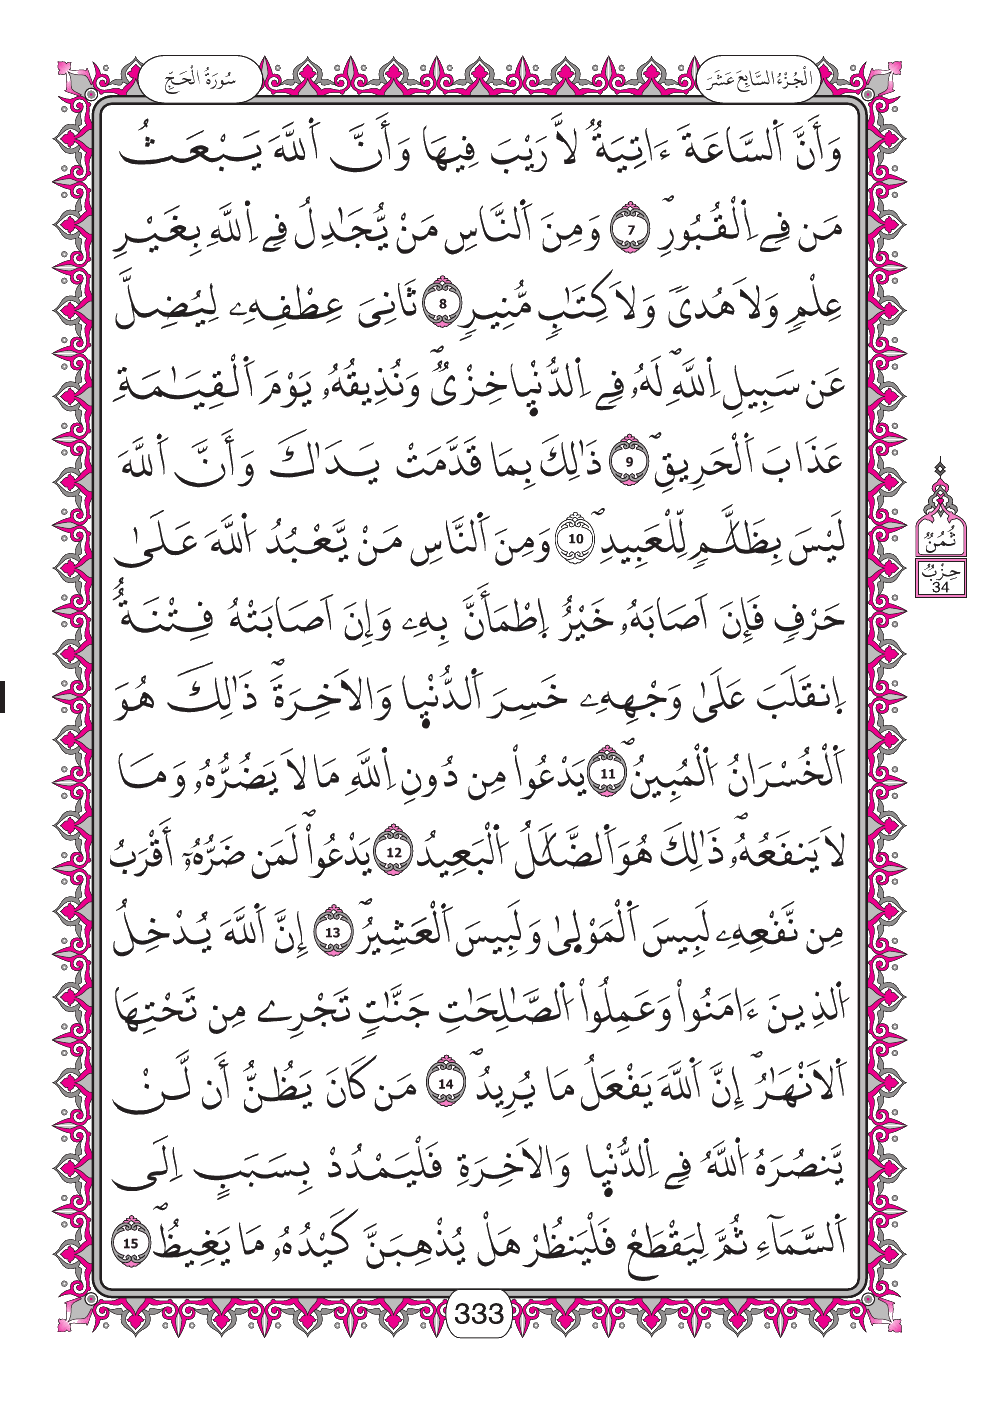 سُورَةُ الْحَجِّ
الْجُزْءُ السَّابِعَ عَشَرَ
وَأَنَّ اَ۬لسَّاعَةَ ءَاتِيَةٞ لَّا رَيْبَ فِيهَا وَأَنَّ اَ۬للَّهَ يَبْعَثُ
مَن فِے اِ۬لْقُبُورِۖ 7 وَمِنَ اَ۬لنَّاسِ مَنْ يُّجَٰدِلُ فِے اِ۬للَّهِ بِغَيْرِ
عِلْمٖ وَلَا هُديٗ وَلَا كِتَٰبٖ مُّنِيرٖ 8 ثَانِيَ عِطْفِهِۦ لِيُضِلَّ
عَن سَبِيلِ اِ۬للَّهِۖ لَهُۥ فِے اِ۬لدُّنْي۪ا خِزْيٞۖ وَنُذِيقُهُۥ يَوْمَ اَ۬لْقِيَٰمَةِ
عَذَابَ اَ۬لْحَرِيقِۖ 9 ذَٰلِكَ بِمَا قَدَّمَتْ يَدَٰكَ وَأَنَّ اَ۬للَّهَ
لَيْسَ بِظَلَّٰمٖ لِّلْعَبِيدِۖ 10 وَمِنَ اَ۬لنَّاسِ مَنْ يَّعْبُدُ اُ۬للَّهَ عَلَىٰ
حَرْفٖ فَإِنَ اَصَابَهُۥ خَيْرٌ اِ۪طْمَأَنَّ بِهِۦ وَإِنَ اَصَابَتْهُ فِتْنَةٌ
اِ۪نقَلَبَ عَلَىٰ وَجْهِهِۦ خَسِرَ اَ۬لدُّنْي۪ا وَالَاخِرَةَۖ ذَٰلِكَ هُوَ
اَ۬لْخُسْرَانُ اُ۬لْمُبِينُۖ 11 يَدْعُواْ مِن دُونِ اِ۬للَّهِ مَا لَا يَضُرُّهُۥ وَمَا
لَا يَنفَعُهُۥۖ ذَٰلِكَ هُوَ اَ۬لضَّلَٰلُ اُ۬لْبَعِيدُ 12 يَدْعُواْۖ لَمَن ضَرُّهُۥٓ أَقْرَبُ
مِن نَّفْعِهِۦ لَبِيسَ اَ۬لْمَوْل۪ىٰ وَلَبِيسَ اَ۬لْعَشِيرُۖ 13 إِنَّ اَ۬للَّهَ يُدْخِلُ
اُ۬لذِينَ ءَامَنُواْ وَعَمِلُواْ اُ۬لصَّٰلِحَٰتِ جَنَّٰتٖ تَجْرِے مِن تَحْتِهَا
اَ۬لَانْهَٰرُۖ إِنَّ اَ۬للَّهَ يَفْعَلُ مَا يُرِيدُۖ 14 مَن كَانَ يَظُنُّ أَن لَّنْ
يَّنصُرَهُ اُ۬للَّهُ فِے اِ۬لدُّنْي۪ا وَالَاخِرَةِ فَلْيَمْدُدْ بِسَبَبٍ اِلَى
اَ۬لسَّمَآءِ ثُمَّ لِيَقْطَعْ فَلْيَنظُرْ هَلْ يُذْهِبَنَّ كَيْدُهُۥ مَا يَغِيظُۖ 15
ثُمُنُ
حِزْبُ
34
333